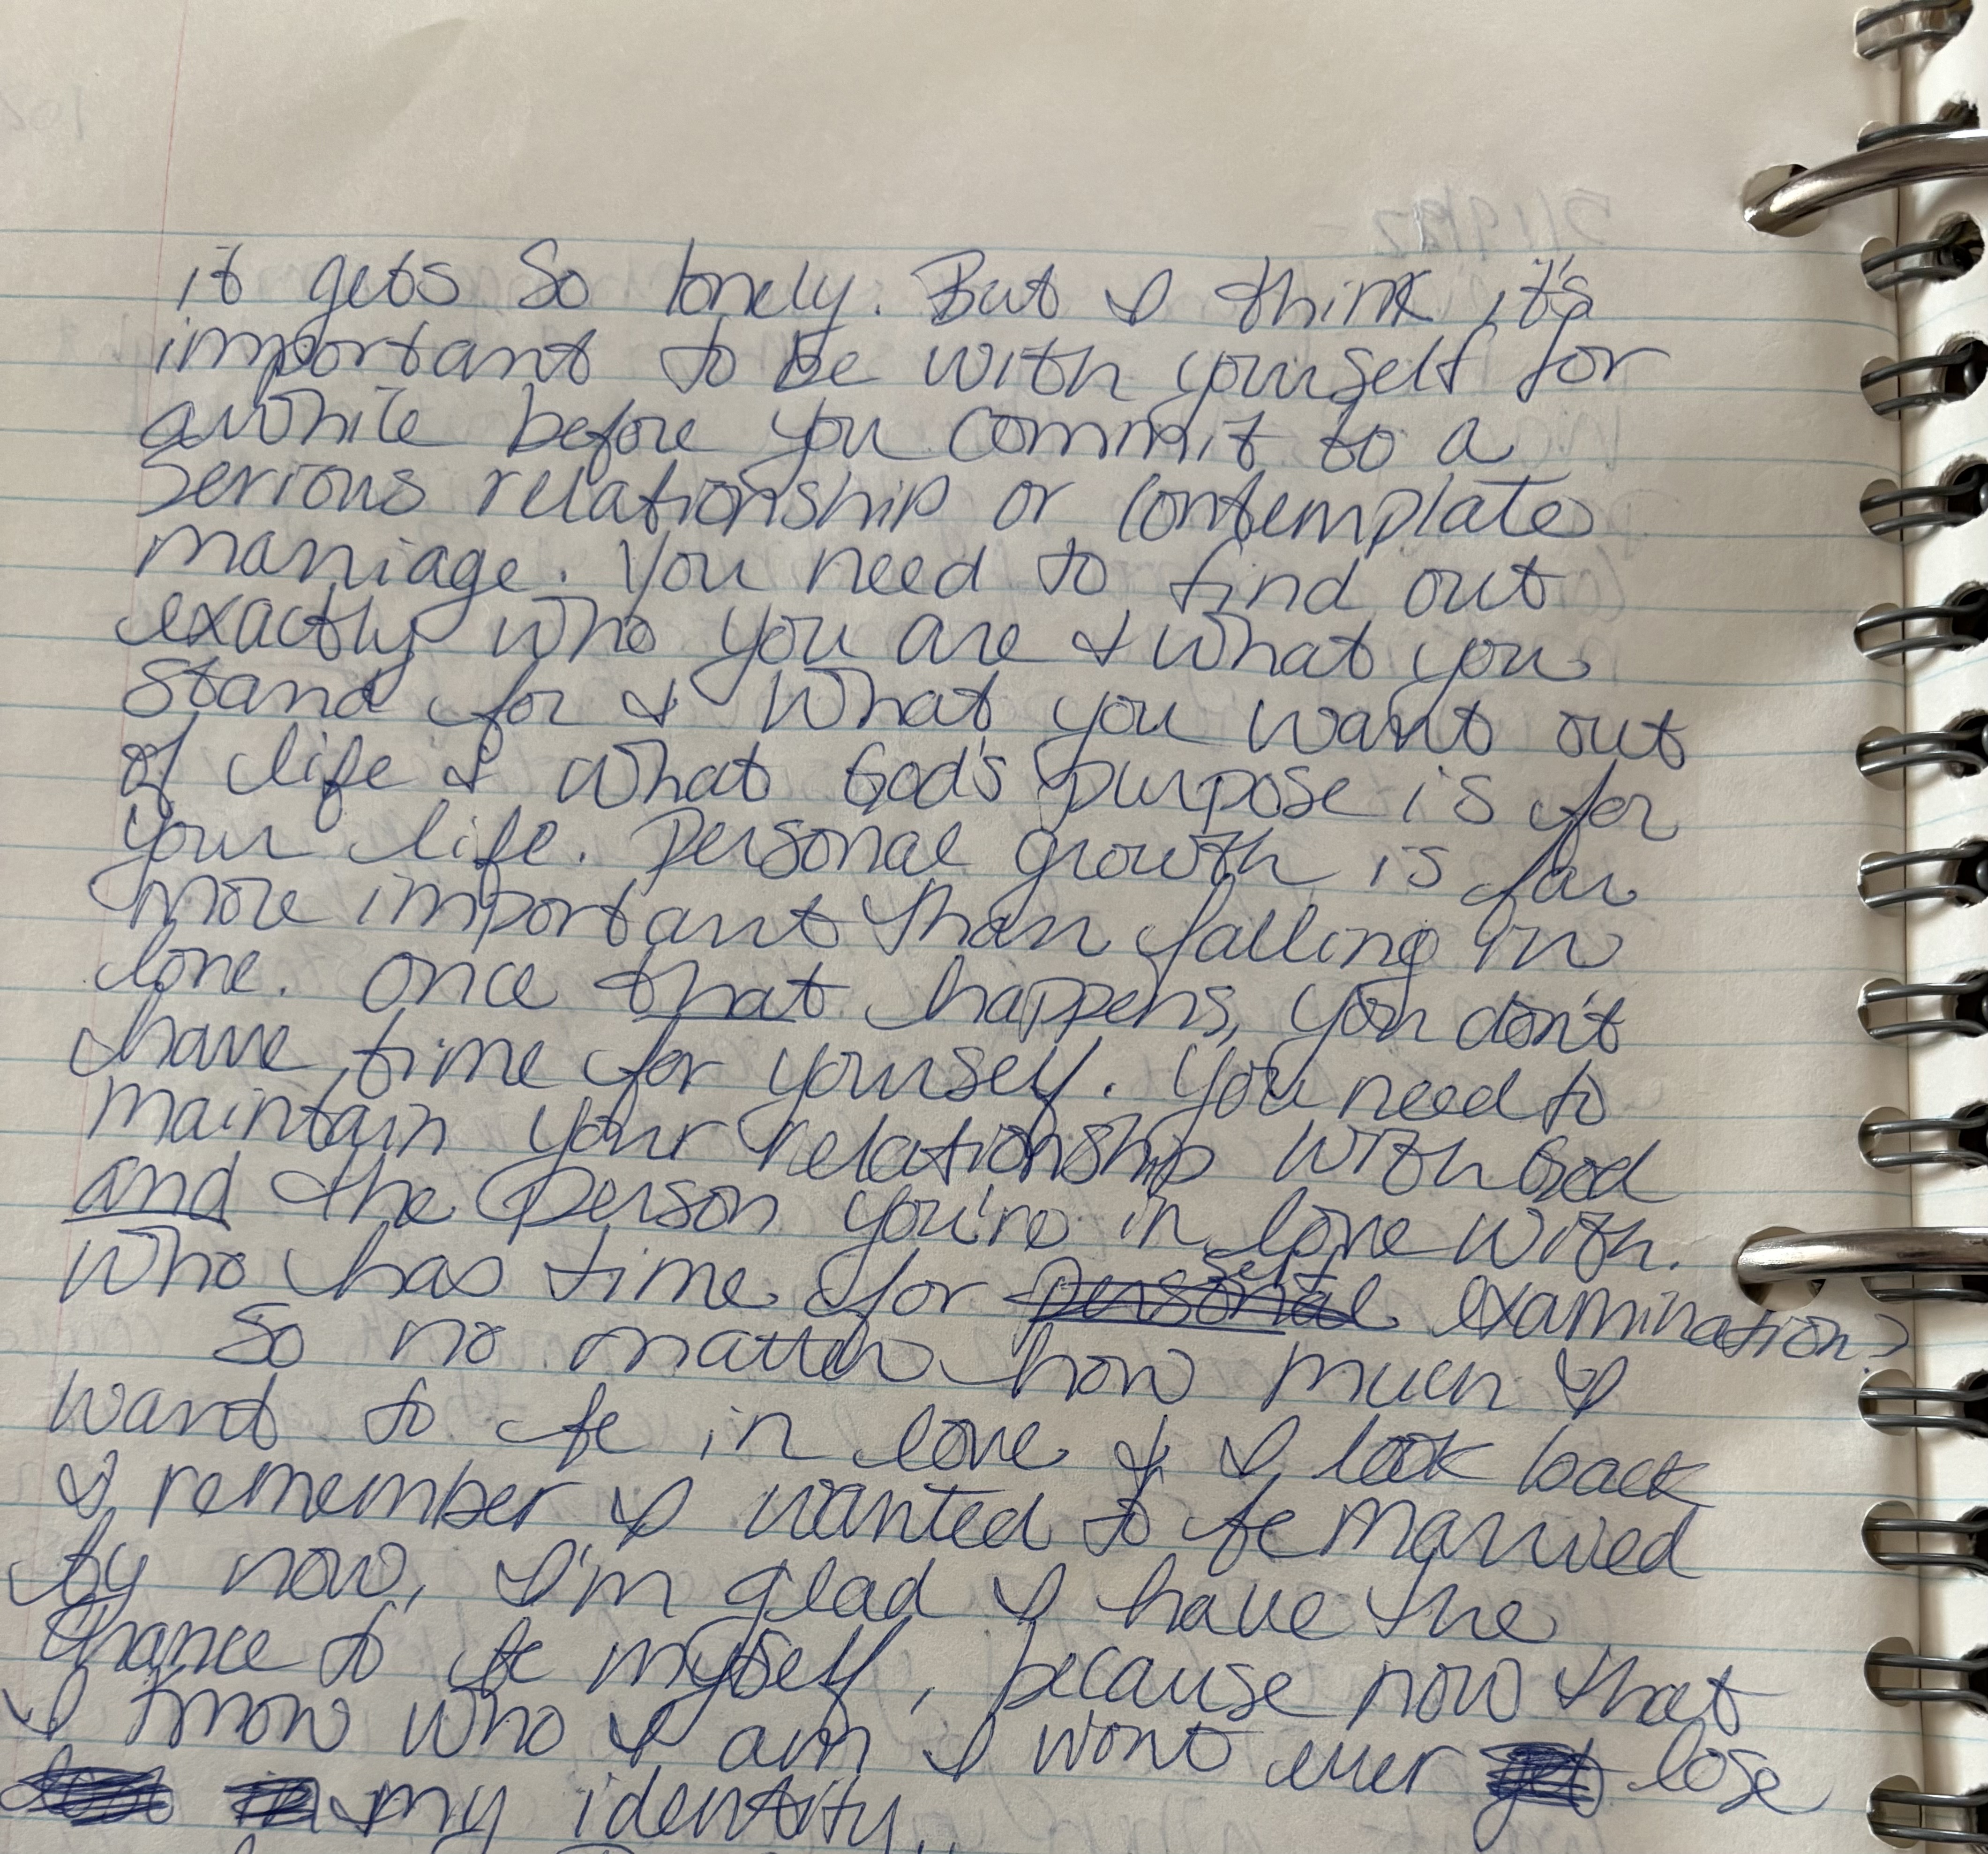 it gets so lonely. But I think it's
important to be with yourself for
awhile before you commit to a
serious relationship or contemplate
marriage. You need to find out
exactly who you are & what you
stand for & what you want out
of life & what God's purpose is for
your life. Personal growth is far
more important than falling in
love. Once that happens, you don't
have time for yourself. You need to
maintain your relationship with God
and the person you're in love with.
Who has time for self examination?
So no matter how much I
want to be in love & I look back
& remember I wanted to be married
by now, I'm glad I have the
chance to be myself, because now that
I know who I am I won't ever lose
my identity..